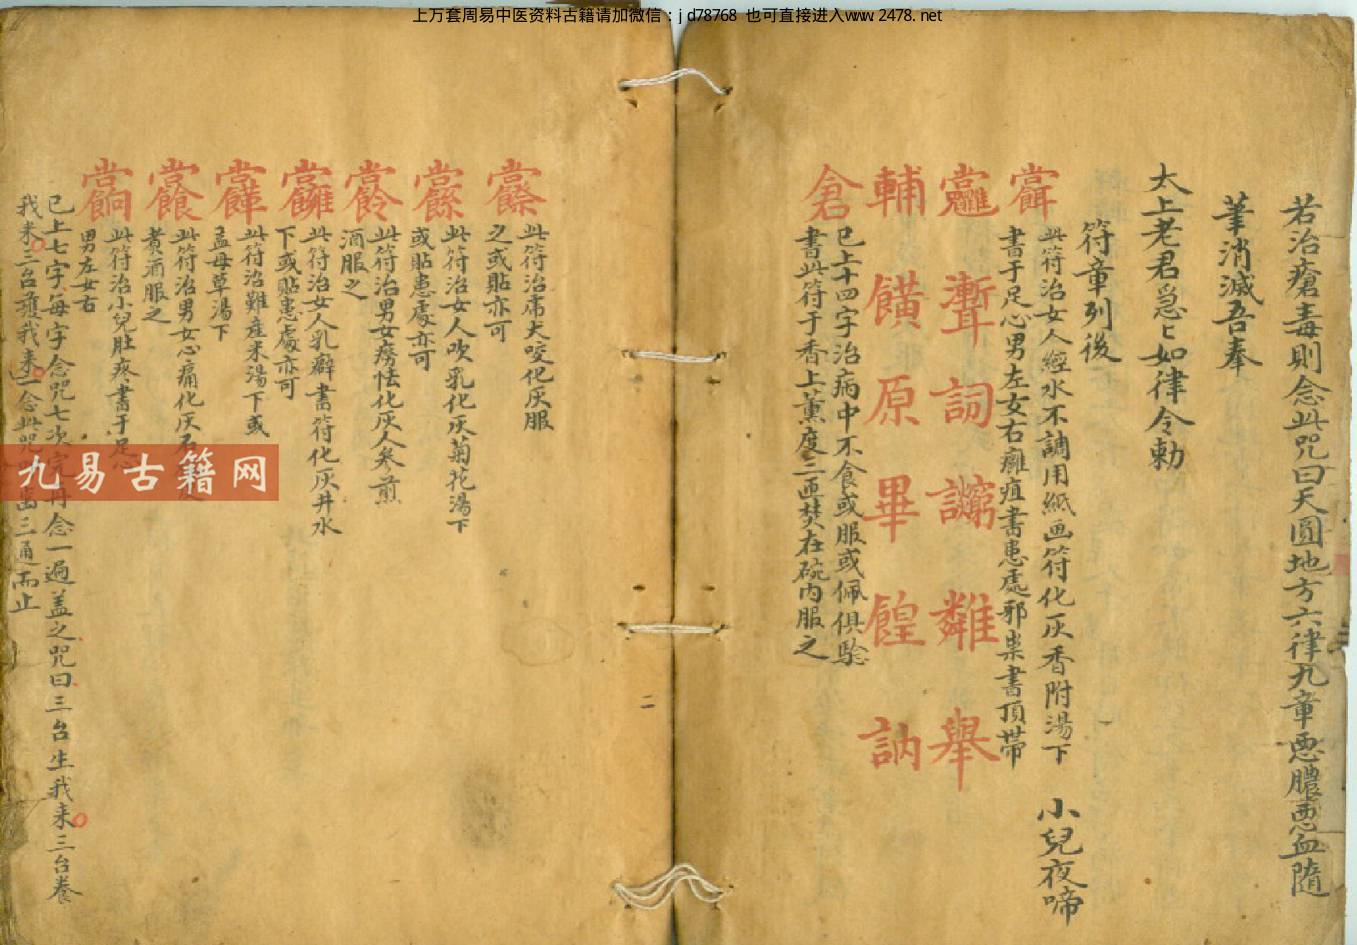 上万套周易中医资料古籍请加微信：jd78768 也可直接进入www2478.net
若治瘡毒則念此咒曰天圓地方六律九章惡膿惡血隨
筆消滅吾奉
太上老君急匕如律令勅
符章列後
此符治女人經水不調用紙画符化灰香附湯下
小兒夜啼
書于足心男左女右癰疽書患處邪祟書頂帶
詞 舉
輔 原 畢 餭 訥
倉
已上十四字治病中不食或服或佩俱驗
書此符于香上薰度三匝焚在碗内服之
二
此符治席犬咬化灰服
之或貼亦可
此符治女人吹乳化灰菊花湯下
或貼患處亦可
此符治男女癆怯化灰人參煎
酒服之
此符治女人乳癖書符化灰井水
下或貼患處亦可
此符治難産米湯下或
孟母草湯下
此符治男女心痛化灰
煮酒服之
此符治小兒肚疼書于足心
男左女右
已上七字每字念咒七次完再念一遍盖之咒曰三台生我来三台養
我来三台護我来一念此咒三通而止
九易古籍网